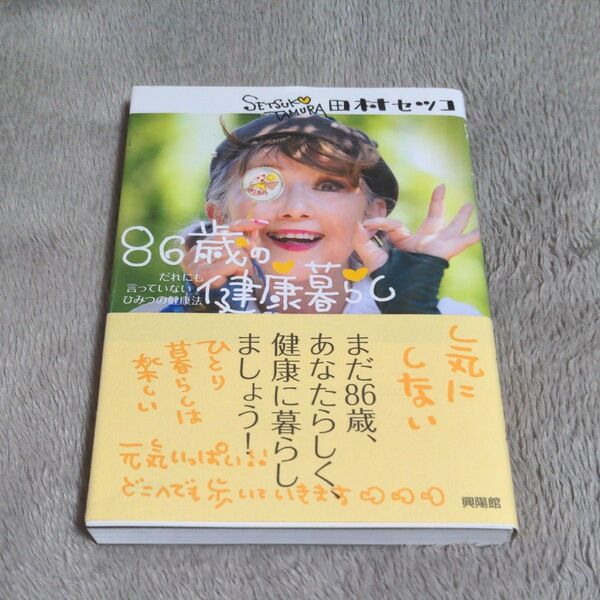 SETSUKO
TAMURA
田村セツコ
86歳の
健康暮らし
だれにも
言っていない
ひみつの健康法
まだ86歳、
あなたらしく、
健康に暮らし
ましょう!
気に
しない
ひとり
暮らしは
楽しい
元気いっぱい!!
どこへでも歩いていきます
興陽館